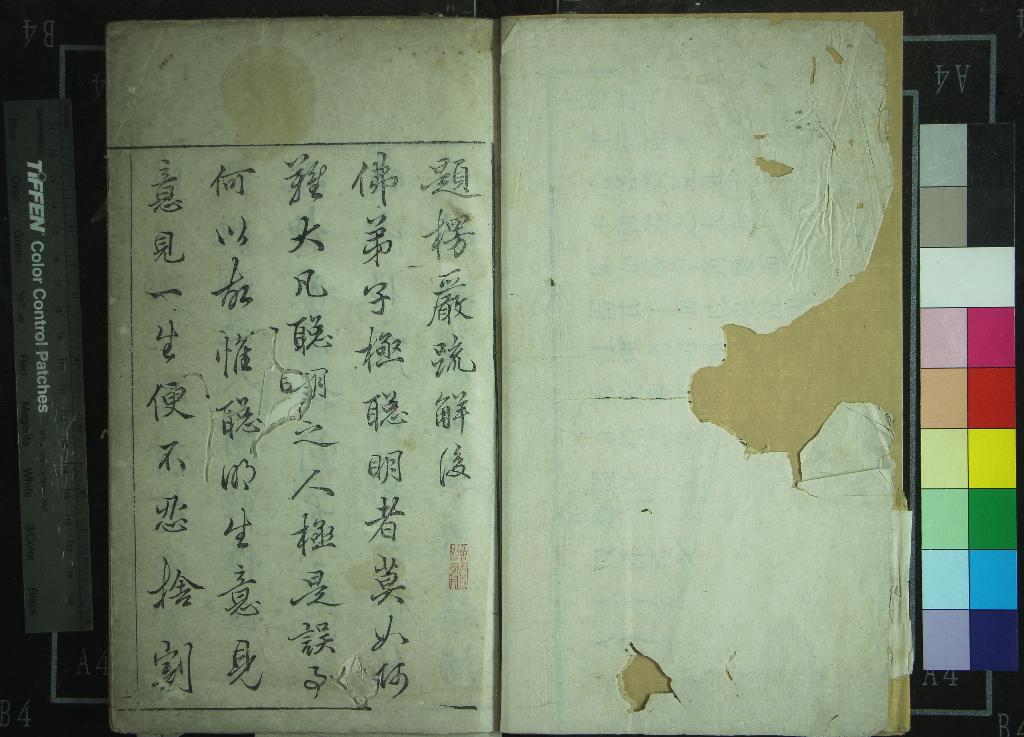 題楞嚴疏解後
佛弟子極聰明者莫如阿
難大凡聰明之人極是誤事
何以故惟聰明生意見
意見一生便不忍捨割
TIFFEN Color Control Patches
Blue
Cyan
Green
Yellow
Red
Magenta
White
3/Color
Black
A4
B4
A4
A4
B4
B4